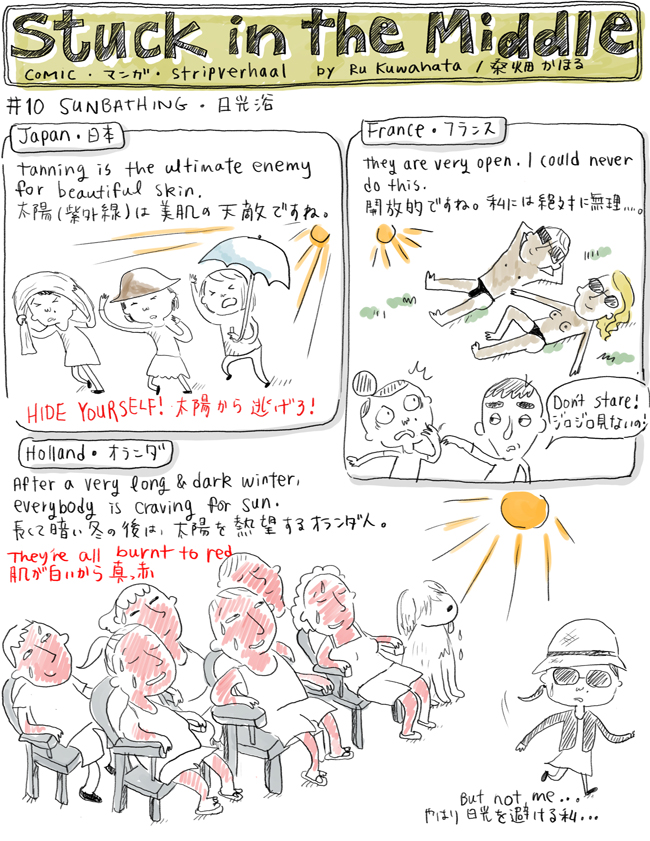 Stuck in the Middle
COMIC・マンガ・Stripverhaal by Ru Kuwahata / 桑畑かほる
#10 SUNBATHING・日光浴
Japan・日本
tanning is the ultimate enemy
for beautiful skin.
太陽(紫外線)は美肌の天敵ですね。
HIDE YOURSELF! 太陽から逃げろ!
France・フランス
they are very open. I could never
do this.
開放的ですね。私には絶対に無理....。
Don't stare!
ジロジロ見ないの!
Holland・オランダ
After a very long & dark winter,
everybody is craving for sun.
長くて暗い冬の後は、太陽を熱望するオランダ人。
They're all burnt to red
肌が白いから真っ赤
But not me...
やはり日光を避ける私...